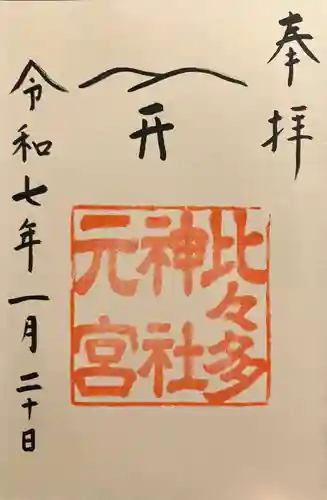 奉拝
开
比々多
神社
元宮
令和七年一月二十日